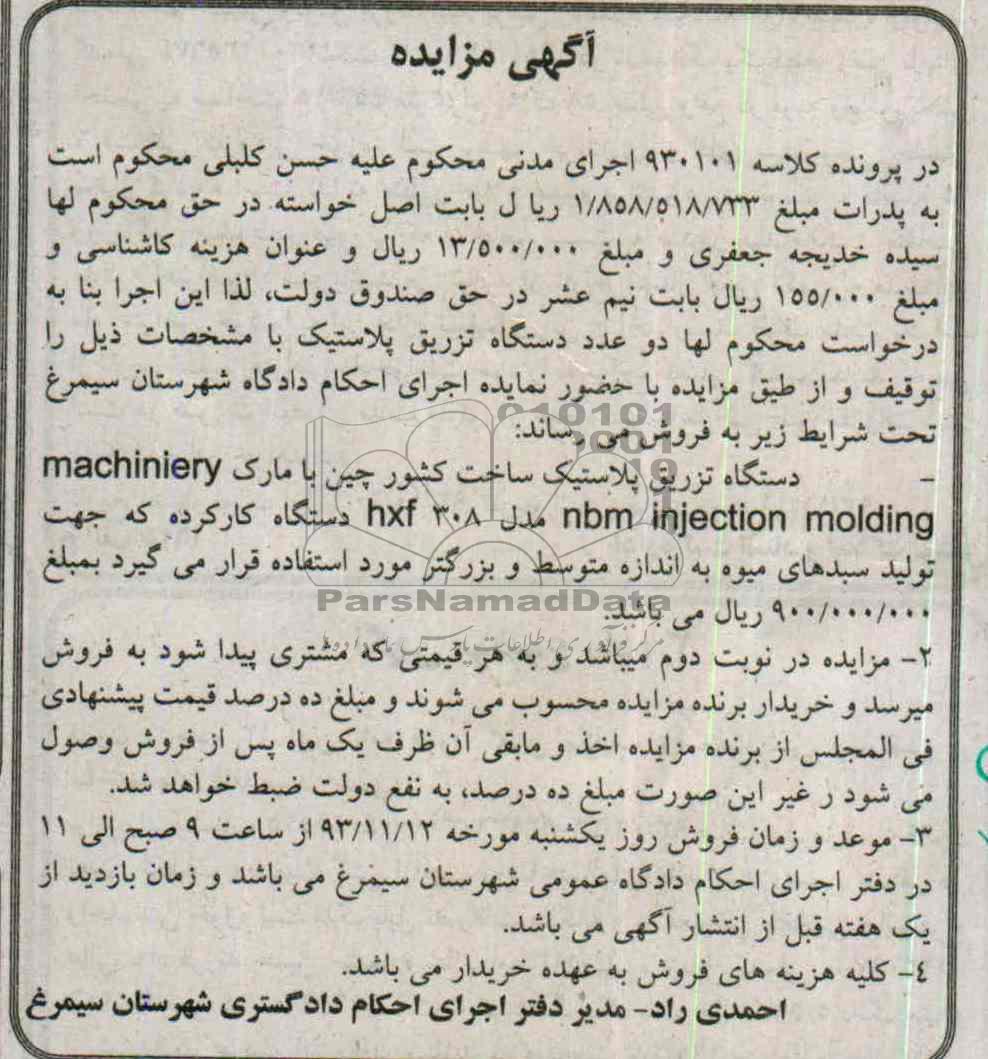 آگهی مزایده
در پرونده کلاسه ۹۳۰۱۰۱ اجرای مدنی محکوم علیه حسن کلبلی محکوم است
به پدرات مبلغ ۱/۸۵۸/۵۱۸/۷۳۳ ریا ل بابت اصل خواسته در حق محکوم لها
سیده خدیجه جعفری و مبلغ ۱۳/۵۰۰/۰۰۰ ریال و عنوان هزینه کاشناسی و
مبلغ ۱۵۵/۰۰۰ ریال بابت نیم عشر در حق صندوق دولت، لذا این اجرا بنا به
درخواست محکوم لها دو عدد دستگاه تزریق پلاستیک با مشخصات ذیل را
توقیف و از طیق مزایده با حضور نمایده اجرای احکام دادگاه شهرستان سیمرغ
تحت شرایط زیر به فروش می رساند:
- دستگاه تزریق پلاستیک ساخت کشور چین با مارک machiniery
nbm injection molding مدل hxf ۳۰۸ دستگاه کارکرده که جهت
تولید سبدهای میوه به اندازه متوسط و بزرگتر مورد استفاده قرار می گیرد بمبلغ
۹۰۰/۰۰۰/۰۰۰ ریال می باشد.
ParsNamadData
۲- مزایده در نوبت دوم میباشد و به هر قیمتی که مشتری پیدا شود به فروش
میرسد و خریدار برنده مزایده محسوب می شوند و مبلغ ده درصد قیمت پیشنهادی
فی المجلس از برنده مزایده اخذ و مابقی آن ظرف یک ماه پس از فروش وصول
می شود ر غیر این صورت مبلغ ده درصد، به نفع دولت ضبط خواهد شد.
۳- موعد و زمان فروش روز یکشنبه مورخه ۹۳/۱۱/۱۲ از ساعت ۹ صبح الی ۱۱
در دفتر اجرای احکام دادگاه عمومی شهرستان سیمرغ می باشد و زمان بازدید از
یک هفته قبل از انتشار آگهی می باشد.
٤- کلیه هزینه های فروش به عهده خریدار می باشد.
احمدی راد- مدیر دفتر اجرای احکام دادگستری شهرستان سیمرغ